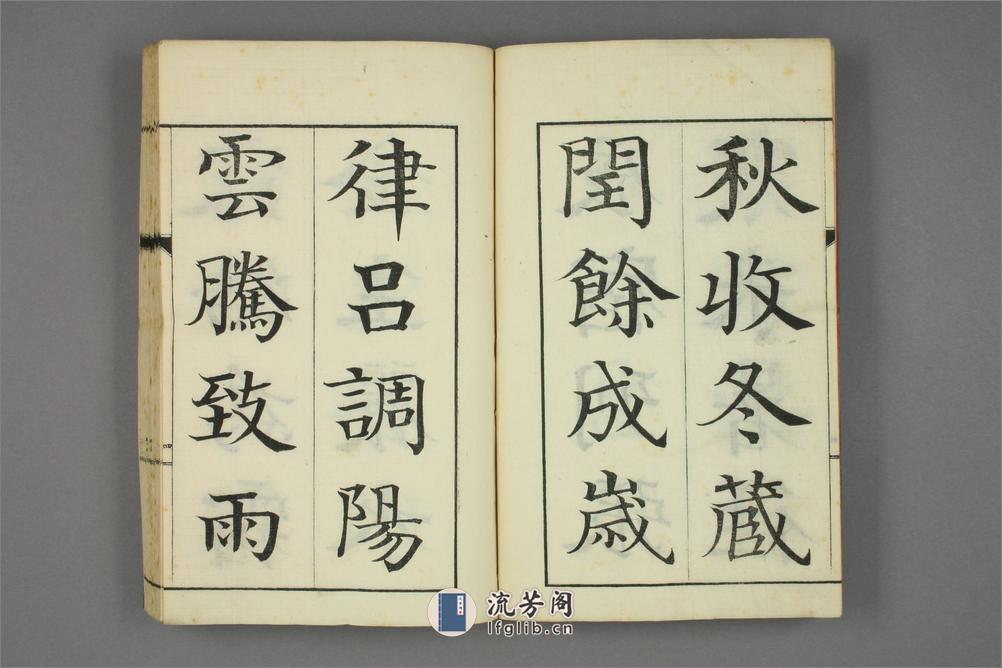 秋收冬蔵
閏餘成歳
律呂調陽
雲騰致雨
流芳阁
lfglib.cn